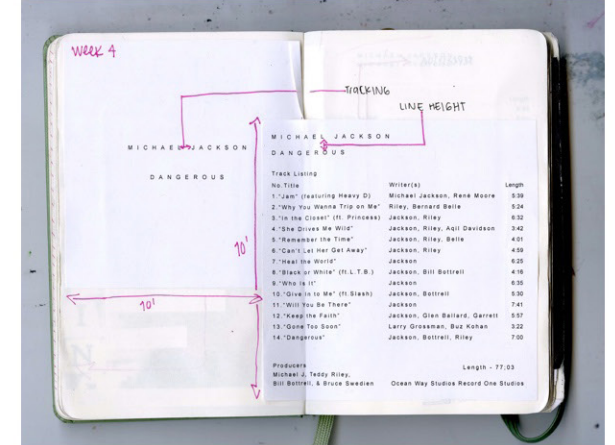 Week 4
TRACKING
LINE HEIGHT
MICHAEL JACKSON
DANGEROUS
10'
10'
MICHAEL JACKSON
DANGEROUS
Track Listing
No. Title Writer(s) Length
1. "Jam" (featuring Heavy D) Michael Jackson, René Moore 5:39
2. "Why You Wanna Trip on Me" Riley, Bernard Belle 5:24
3. "In the Closet" (ft. Princess) Jackson, Riley 6:32
4. "She Drives Me Wild" Jackson, Riley, Aqil Davidson 3:42
5. "Remember the Time" Jackson, Riley, Belle 4:01
6. "Can't Let Her Get Away" Jackson, Riley 4:59
7. "Heal the World" Jackson 6:25
8. "Black or White" (ft. L.T.B.) Jackson, Bill Bottrell 4:16
9. "Who Is It" Jackson 6:35
10. "Give In to Me" (ft. Slash) Jackson, Bottrell 5:30
11. "Will You Be There" Jackson 7:41
12. "Keep the Faith" Jackson, Glen Ballard, Garrett 5:57
13. "Gone Too Soon" Larry Grossman, Buz Kohan 3:22
14. "Dangerous" Jackson, Bottrell, Riley 7:00
Producers Length - 77;03
Michael J, Teddy Riley,
Bill Bottrell, & Bruce Swedien Ocean Way Studios Record One Studios